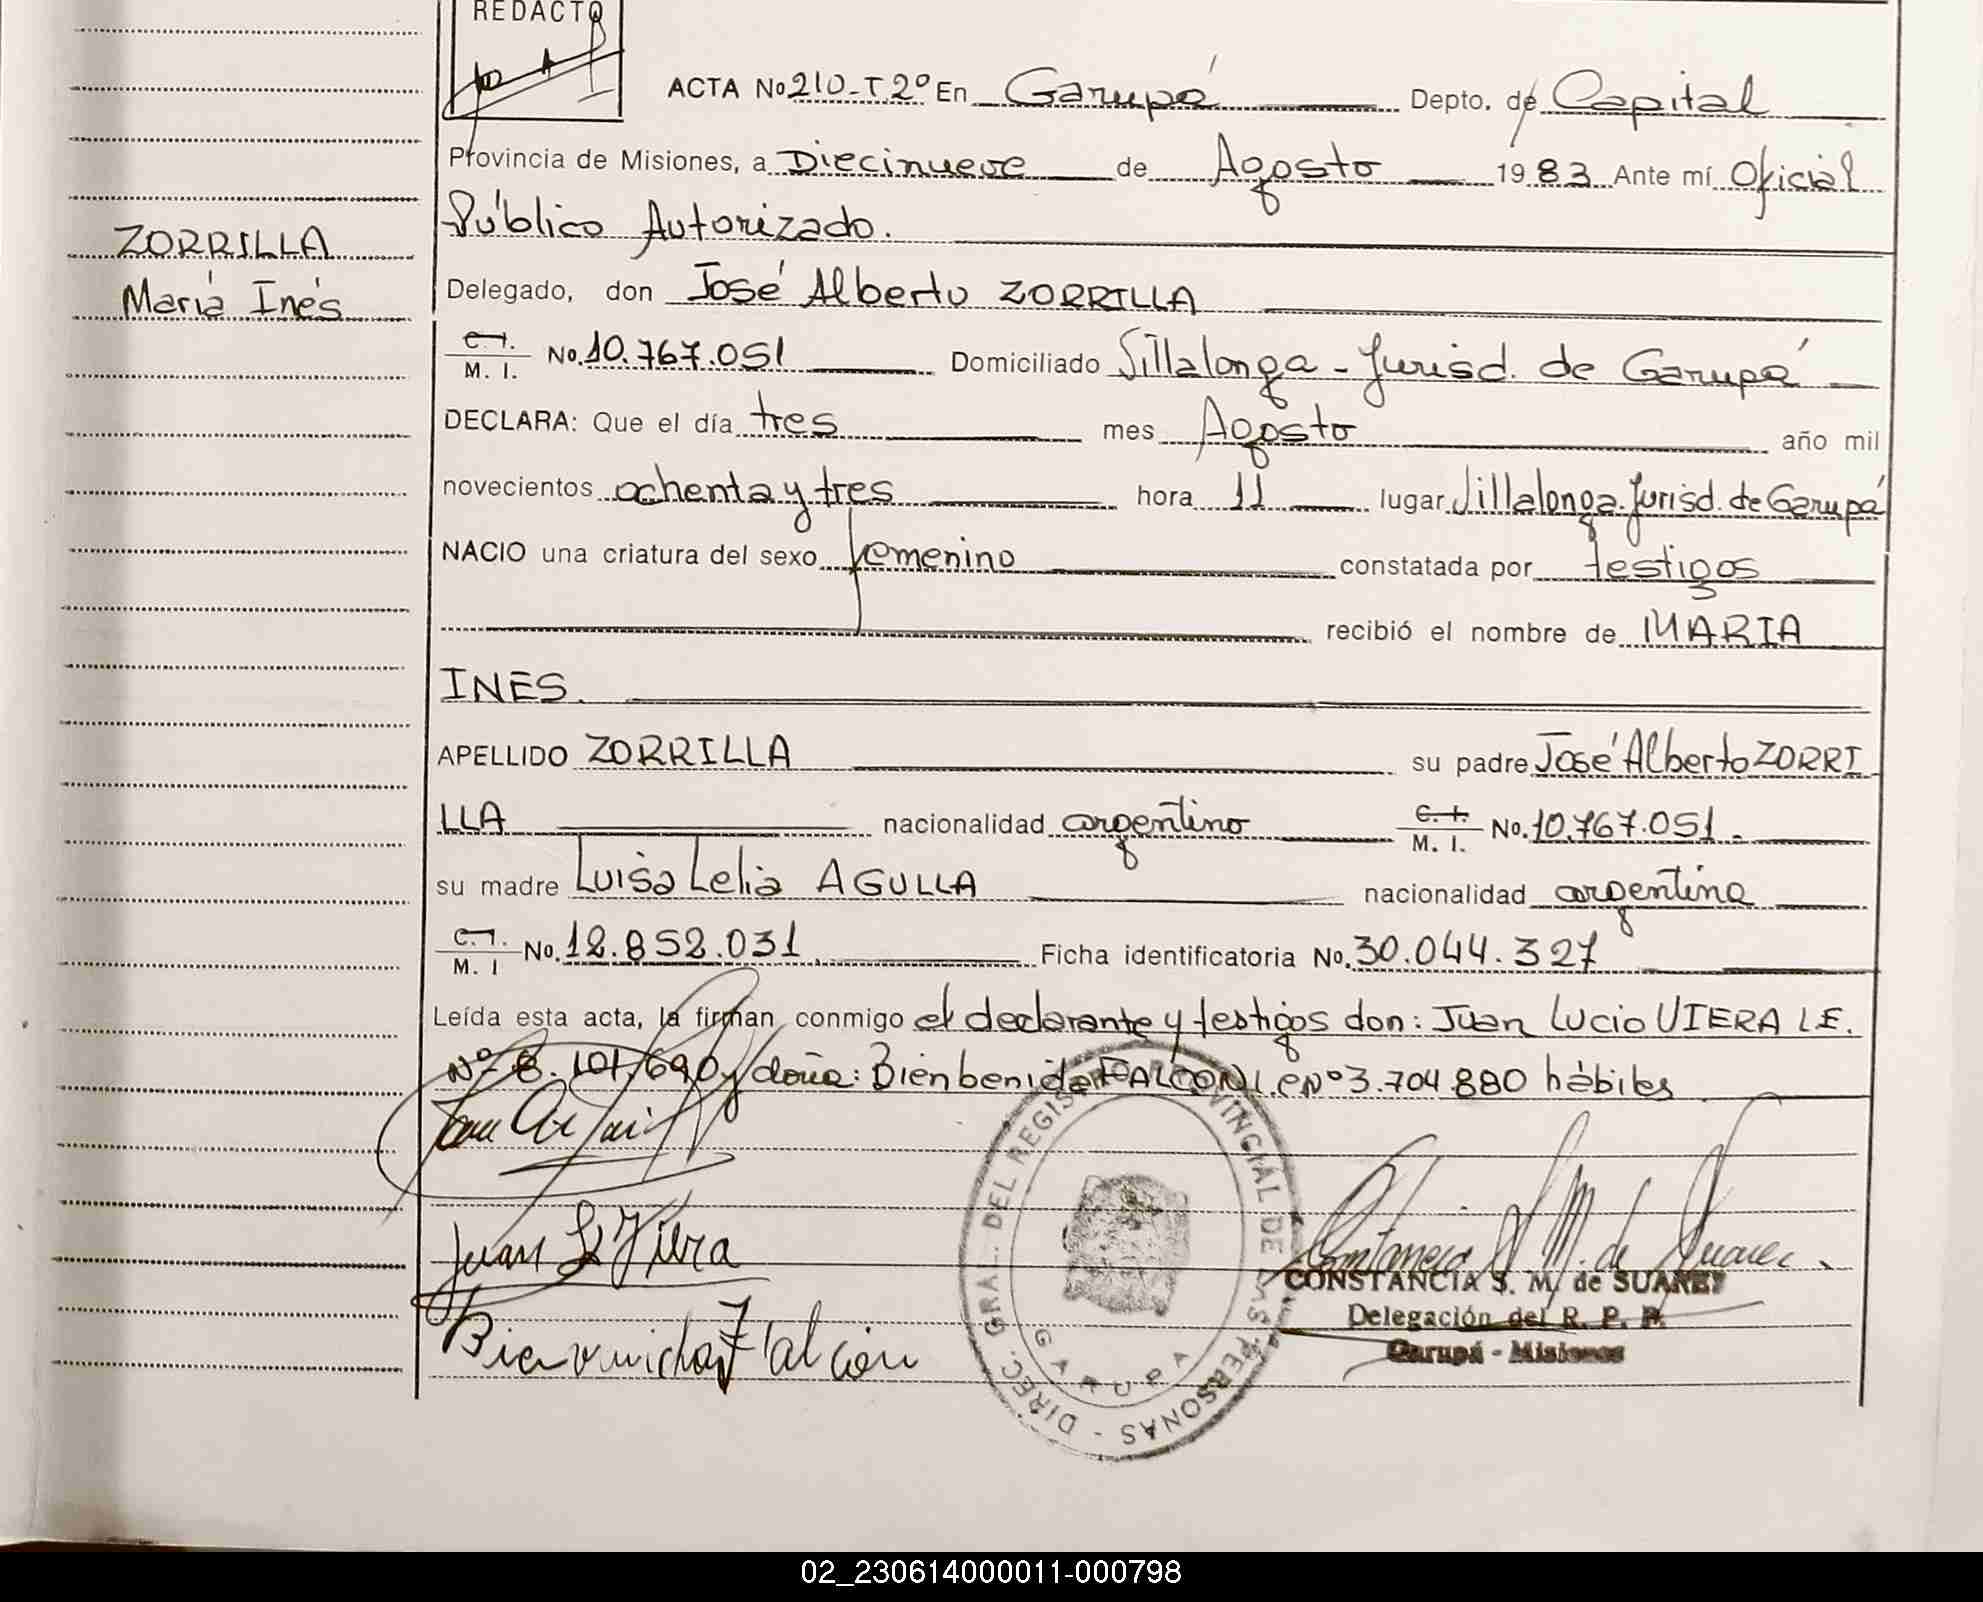 REDACTO
ACTA No 210-T 2º En Garupá Depto. de Capital
Provincia de Misiones, a Diecinueve de Agosto 1983 Ante mí Oficial
Público Autorizado.
ZORRILLA
María Inés
Delegado, don José Alberto ZORRILLA
C.I.
M. I. No. 10.767.051 Domiciliado Villalonga - Jurisd. de Garupá
DECLARA: Que el día tres mes Agosto año mil
novecientos ochenta y tres hora 11 lugar Villalonga. Jurisd. de Garupá
NACIO una criatura del sexo femenino constatada por testigos
recibió el nombre de MARIA
INES.
APELLIDO ZORRILLA su padre José Alberto ZORRI
LLA nacionalidad argentino C.I. M. I. No. 10.767.051.
su madre Luisa Lelia AGULLA nacionalidad argentina
C.I. M. I No. 12.852.031 Ficha identificatoria No. 30.044.327
Leída esta acta, la firman conmigo el declarante y testigos don: Juan Lucio VIERA L.E.
Nº 8.101.690 y doña: Bienbenida FALCON L.C Nº 3.704.880 hábiles
Juan L Viera
Bienvenida Falcón
DIREC. GRAL. DEL REGISTRO PROVINCIAL DE LAS PERSONAS -
GARUPA
Constancia S M. de Suarez.
CONSTANCIA S. M. de SUAREZ
Delegación del R. P. P.
Garupá - Misiones
02_230614000011-000798